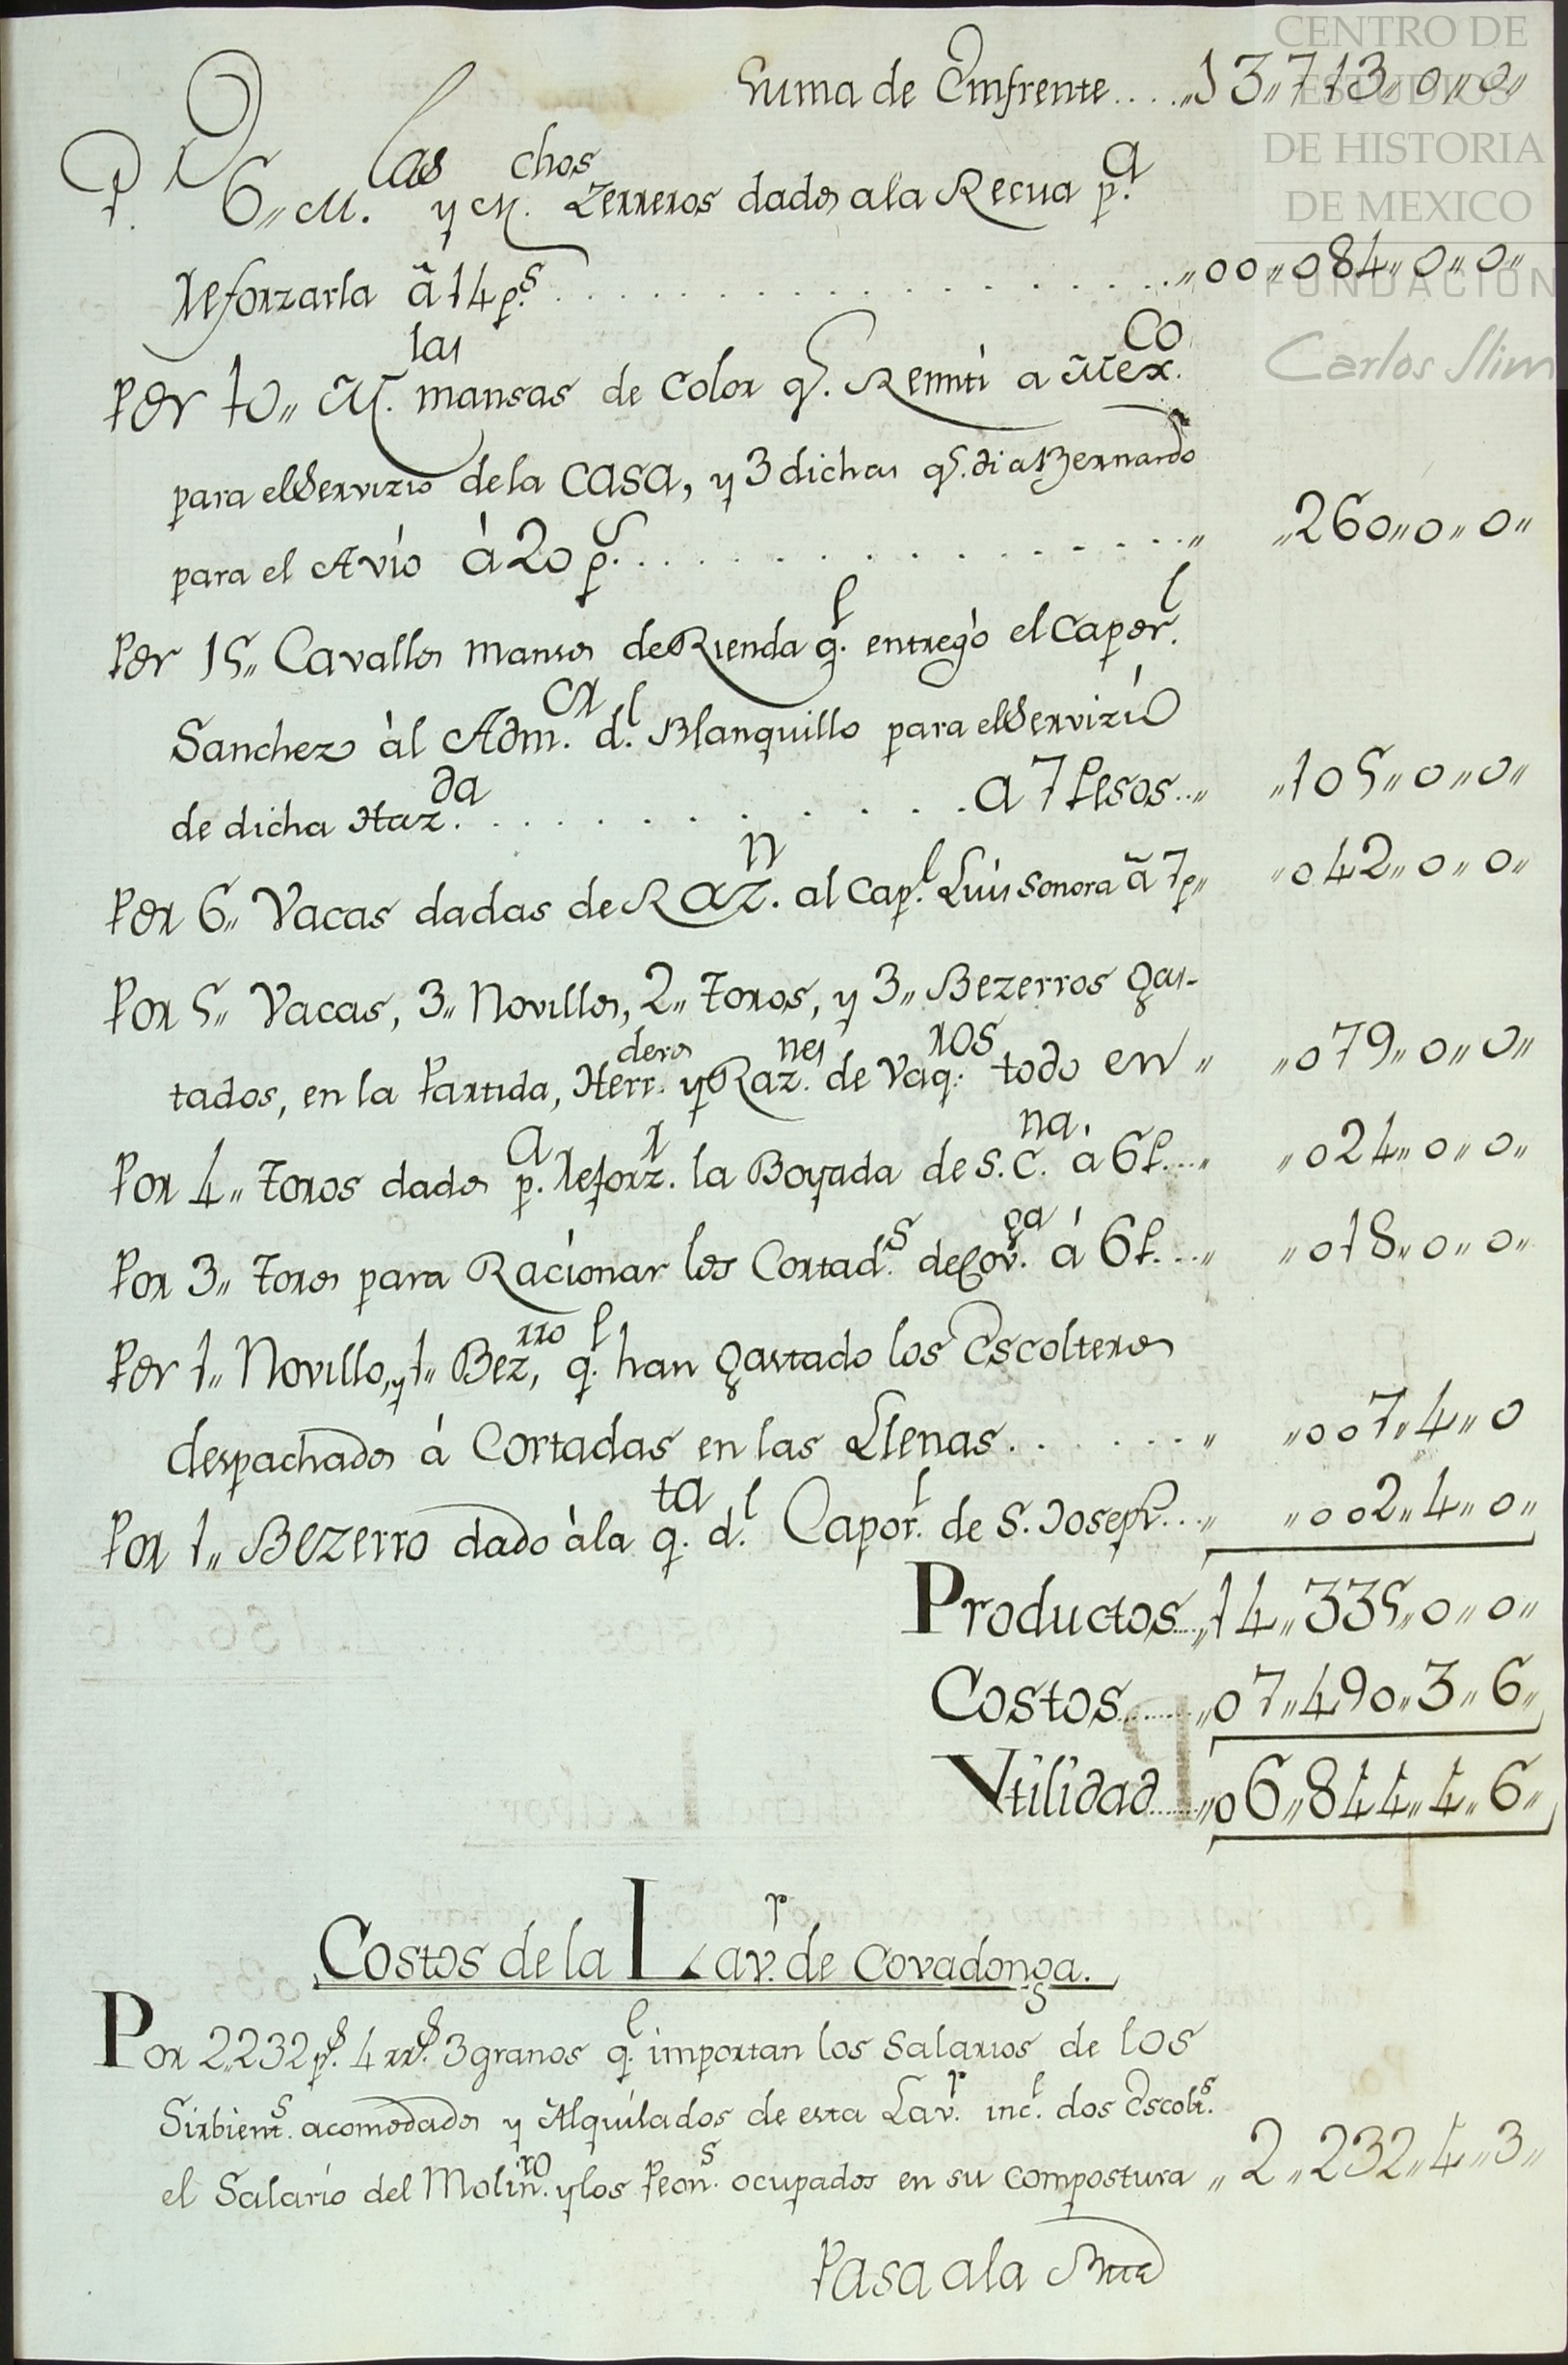 CENTRO DE
ESTUDIOS
DE HISTORIA
DE MEXICO
FUNDACIÓN
Carlos Slim
Suma de Emfrente....„13„713„0„0„
P.r 6„ M.las y M.chos Zerreros dados ala Recua p.a
reforzarla ã 14 p.s . . . . . „00„084„0„0„
Por 10„ M.las mansas de Color q.e Remiti a Mex.co
para el Servizio de la Casa, y 3 dichas q.e di a Bernardo
para el Avío à 20 p.s . . . . . „ „260„0„0„
Por 15„ Cavallos mansos de Rienda q.e entregò el Capor.l
Sanchez àl Adm.or d.l Blanquillo para el Servizio
de dicha Haz.da . . . . . a 7 Pesos..„ „105„0„0„
Por 6„ Vacas dadas de Raz.n al Cap.l Luis Sonora ã 7p„ „042„0„0„
Por 5„ Vacas, 3„ Novillos, 2„ Toros, y 3„ Bezerros gas-
tados, en la Partida, Herr.deros y Raz.nes de Vaq.ros todo en „ „079„0„0„
Por 4„ Toros dados p.a reforz.r la Boyada de S.C.na à 6P...„ „024„0„0„
Por 3„ Toros para Racionar los Cortad.s de Cov.ga á 6P...„ „018„0„0„
Por 1„ Novillo, y 1„ Bez.rro, q.e han gastado los Escolteros
despachados á Cortadas en las Llenas. . . . . „ „007„4„0
Por 1„ Bezerro dado àla q.ta d.l Capor.l de S. Joseph...„ „002„4„0„
Productos...„14„335„0„0„
Costos......„07„490„3„6„
Vtilidad......„06„844„4„6„
Costos de la Lav.r de Covadonga.
Por 2„232 p.s 4 rr.s 3 granos q.e importan los Salarios de los
Sirbient.s acomodados y Alquilados de esta Lav.r inc.l dos Escolt.s
el Salario del Molin.ro y los Peon.s ocupados en su compostura „2„232„4„3„
Pasa ala Bta